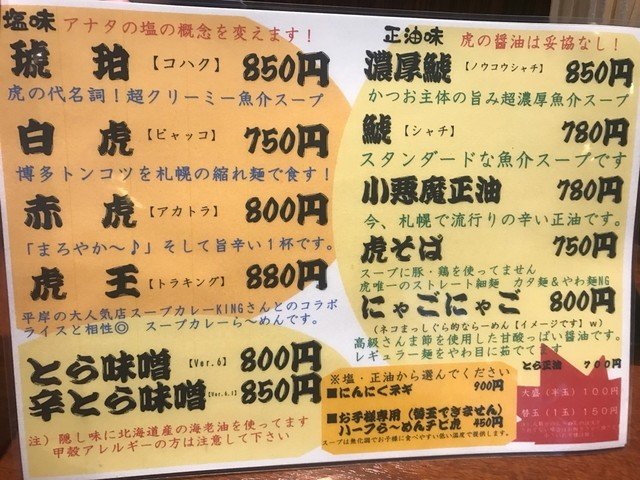 塩味 アナタの塩の概念を変えます！
琥珀【コハク】850円
虎の代名詞！超クリーミー魚介スープ
白虎【ビャッコ】750円
博多トンコツを札幌の縮れ麺で食す！
赤虎【アカトラ】800円
「まろやか〜♪」そして旨辛い１杯です。
虎王【トラキング】880円
平岸の大人気店スープカレーKINGさんとのコラボ
ライスと相性◎ スープカレーら〜めんです。
とら味噌【Ver.6】800円
辛とら味噌【Ver.6.1】850円
注）隠し味に北海道産の海老油を使ってます
甲殻アレルギーの方は注意して下さい
正油味 虎の醤油は妥協なし！
濃厚鯱【ノウコウシャチ】850円
かつお主体の旨み超濃厚魚介スープ
鯱【シャチ】780円
スタンダードな魚介スープです
小悪魔正油 780円
今、札幌で流行りの辛い正油です。
虎そば 750円
スープに豚・鶏を使ってません
虎唯一のストレート細麺 カタ麺＆やわ麺NG
にゃごにゃご 800円
（ネコまっしぐら的ならーめん【イメージです】ｗ）
高級さんま節を使用した甘酸っぱい醤油です。
レギュラー麺をやわ目に茹でてます
※塩・正油から選んでください
■にんにくネギ 900円
■お子様専用（替玉できません）
ハーフら〜めんチビ虎 450円
スープは無化調でお子様に食べやすい低い温度で提供します。
とら正油 700円
大盛（半玉）100円
替玉（1玉）150円